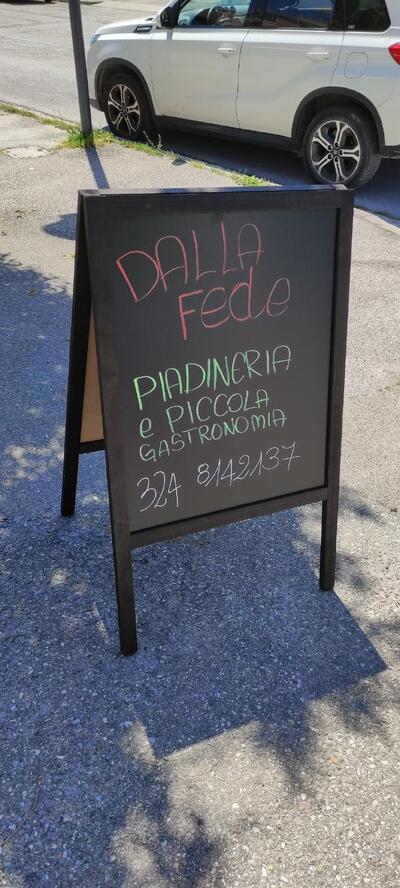 DALLA
Fede
PIADINERIA
e PICCOLA
GASTRONOMIA
324 8142137